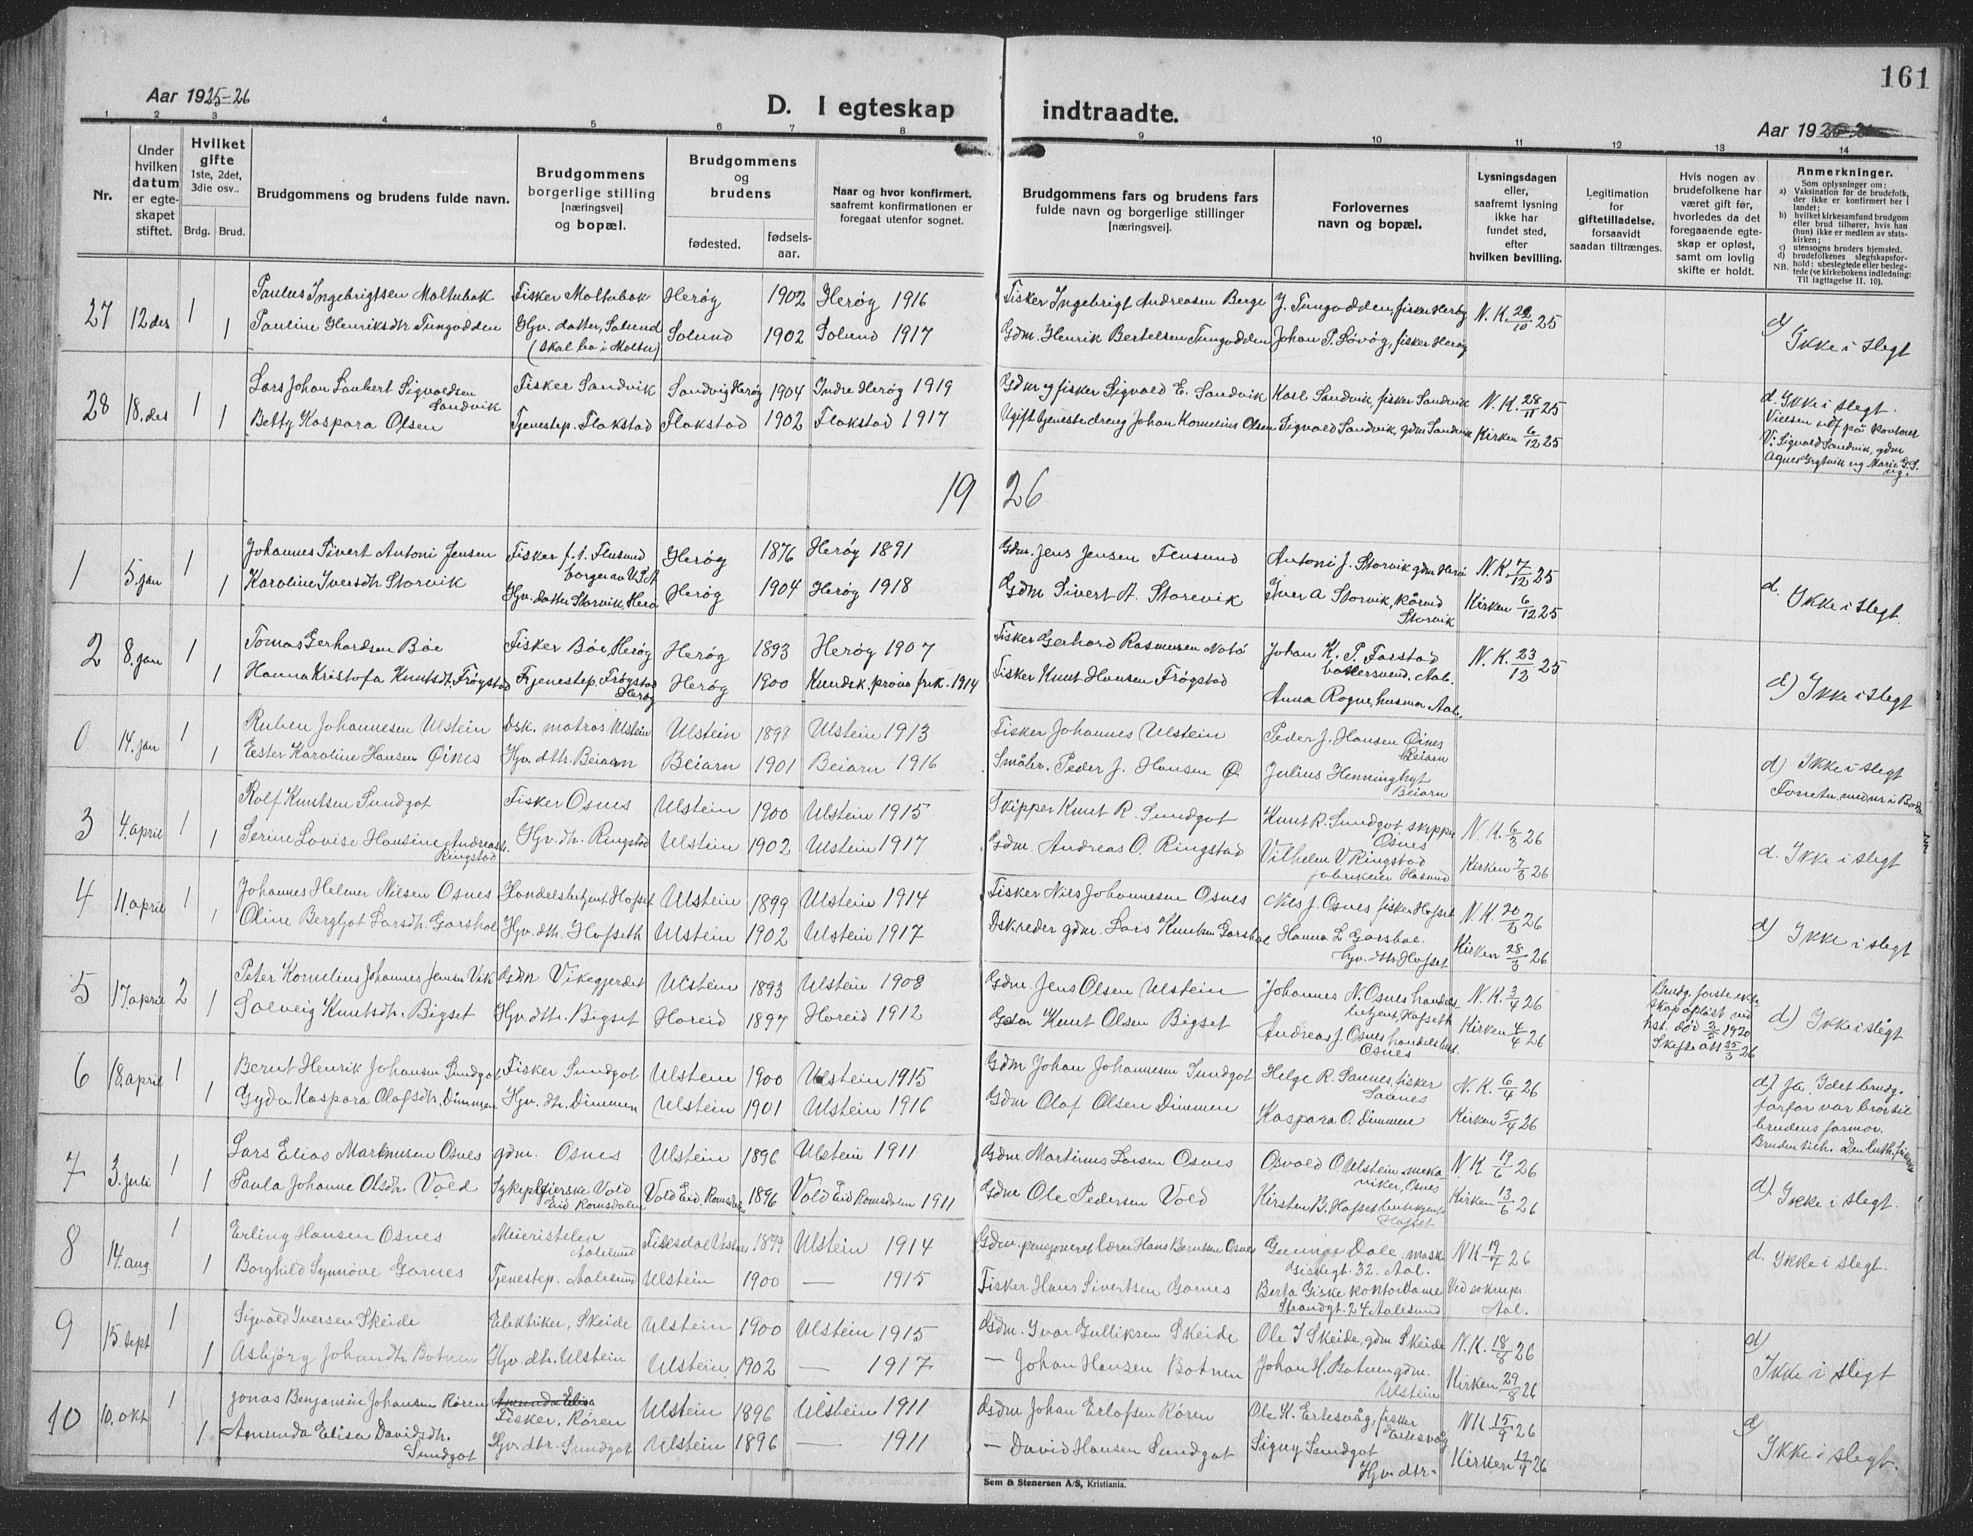 161
Aar 1925-26
D. I egteskap indtraadte.
Aar 19
1 2 3 4 5 6 7 8 9 10 11 12 13 14
Nr.
Under hvilken datum er egteskapet stiftet.
Hvilket gifte 1ste, 2det, 3die osv..
Brdg. Brud.
Brudgommens og brudens fulde navn.
Brudgommens borgerlige stilling [næringsvei] og bopæl.
Brudgommens og brudens
fødested.
fødselsaar.
Naar og hvor konfirmert. saafremt konfirmationen er foregaat utenfor sognet.
Brudgommens fars og brudens fars fulde navn og borgerlige stillinger [næringsvei].
Forlovernes navn og bopæl.
Lysningsdagen eller, saafremt lysning ikke har fundet sted, efter hvilken bevilling.
Legitimation for giftetilladelse. forsaavidt saadan tiltrænges.
Hvis nogen av brudefolkene har været gift før, hvorledes da det foregaaende egteskap er opløst, samt om lovlig skifte er holdt.
Anmerkninger.
Som oplysninger om:
a) Vaksination for de brudefolk, der ikke er konfirmert her i landet;
b) hvilket kirkesamfund brudgom eller brud tilhører, hvis han (hun) ikke er medlem av statskirken;
c) utensogns bruders hjemsted.
d) brudefolkenes slegtskapsforhold: ubeslegtede eller beslegtede (se kirkebokens indledning: Til iagttagelse II. 10).
NB.
27 12 des 1 Paulus Ingebrigtsen Moltubak Fisker Moltubak Herøy 1902 Herøy 1916 Fisker Ingebrigt Andreasen Berge J. Tungodden, fisker Herøy N.K. 25
1 Pauline Henriksdtr Tungodden Hjv. datter, Solund (skal bo i Moltu) Solund 1902 Solund 1917 Gdm. Henrik Bertelsen Tungodden Johan P. Løvøy, fisker Herøy d) Ikke i slegt
28 18. des 1 Lars Johan Laubert Sigvaldsen Sandvik Fisker Sandvik Sandvig Herøy 1904 Indre Herøy 1919 Gdm og fisker Sigvald E. Sandvik Karl Sandvik, fisker Sandvik N.K. 28/11 25 d. Ikke i slegt.
1 Betty Kaspara Olsen Tjenestep. Flakstad Flakstad 1902 Flakstad 1917 Ugift tjenestedreng Johan Kornelius Olsen Sigvald Sandvik, gdm Sandvik Kirken 6/12 25
Vielsen utf på kontoret
V: Sigvald Sandvik, gdm
1926
1 5. jan 1 Johannes Sivert Antoni Jensen Fisker f. i. Flusund borger av U.S.A Herøy 1876 Herøy 1891 Gdm. Jens Jensen Flusund Antoni J. Storvik gdm Herø N.K. 7/12 25
1 Karoline Iversdtr Storvik Hjv. datter Storvik, Herø Herøy 1904 Herøy 1918 Gdm Sivert A. Storevik Iver A Storvik, Storvik Kirken 6/12 25 d. Ikke i slegt.
2 8. jan 1 Tomas Gerhardsen Bøe Fisker Bøe, Herøy Herøy 1893 Herøy 1907 Fisker Gerhard Rasmussen Notø Johan K. P. Farstad Aal. N.K. 23/12 25
1 Hanna Kristofa Knutsdt. Frøystad Tjenestep. Frøystad Herøy Herøy 1900 Kundsk.prøve frik. 1914 Fisker Knut Hansen Frøystad Anna Rogne, husmor Aal. d) Ikke i slegt
0 14. jan 1 Ruben Johannesen Ulstein Dsk. matros Ulstein Ulstein 1898 Ulstein 1913 Fisker Johannes Ulstein Peder J. Hansen Øines Beiarn
1 Ester Karoline Hansen Øines Hjv. dtr. Beiarn Beiarn 1901 Beiarn 1916 Småbr. Peder J. Hansen Ø. Julius Henninghyt Beiarn d) Ikke i slegt
3 4. april 1 Rolf Knutsen Sundgot Fisker Osnes Ulstein 1900 Ulstein 1915 Skipper Knut R. Sundgot Knut R. Sundgot, skipper Osnes N.K. 6/3 26
1 Serine Lovise Hansine Andreasdt. Ringstad Hjv. dtr. Ringstad Ulstein 1902 Ulstein 1917 Gdm. Andreas O. Ringstad Vilhelm V. Ringstad fabrikeier Hasund Kirken 7/3 26 d. Ikke i slegt
4 11. april 1 Johannes Helmer Nilsen Osnes Handelsbetjent Hofset Ulstein 1899 Ulstein 1914 Fisker Nils Johannesen Osnes Nils J. Osnes fisker Hofset N.K. 20/3 26
1 Oline Bergljot Larsdtr. Garshol Hjv. dtr. Hofseth Ulstein 1902 Ulstein 1917 Dsk.reder gdm. Lars Knutsen Garshol Hanna L. Garshol hjv. dtr. Hofset Kirken 28/3 26 d) Ikke i slegt
5 17. april 2 Peter Kornelius Johannes Jensen Vik Gdm Vikegjerdet Ulstein 1893 Ulstein 1908 Gdm Jens Olsen Ulstein Johannes N. Osnes handelsbetjent, Hofseth N.K. 3/4 26
1 Solveig Knutsdtr. Bigset Hjv. dtr. Bigset Hareid 1897 Hareid 1912 Gdm Knut Olsen Bigset Andreas J. Osnes handelsbet. Osnes Kirken 4/4 26
Brudg. første ekteskap opløst ved hst. død 3/5 1920 Skifte att 25/3 26 d) Ikke i slegt
6 18. april 1 Bernt Henrik Johansen Sundgot Fisker Sundgot Ulstein 1900 Ulstein 1915 Gdm Johan Johannesen Sundgot Helge R. Saunes, fisker Saunes N.K. 6/4 26
1 Gyda Kaspara Olafsdtr. Dimmen Hjv. dtr. Dimmen Ulstein 1901 Ulstein 1916 Gdm Olaf Olsen Dimmen Kaspara O. Dimmen Kirken 5/4 26
d) Ja, Idet brudg. farfar var bror til brudens farmor.
7 3. juli 1 Lars Elias Martinusen Osnes gdm. Osnes Ulstein 1896 Ulstein 1911 Gdm Martinus Larsen Osnes Osvald O Ulstein mekaniker, Osnes N.K 19/6 26
1 Paula Johanne Olsdtr. Vold Sykepleierske Vold Eid Romsdalen Vold Eid Romsdalen 1896 Vold Eid Romsdalen 1911 Gdm Ole Pedersen Vold Kirsten B. Hofset Hofset Kirken 13/6 26 d) Ikke i slegt.
8 14. aug 1 Erling Hansen Osnes Meieristelen Aalesund Fiksdal Vestnes 1899 Ulstein 1914 Gdm. pensjonert lærer Hans Berntsen Osnes Gunnar Dale, mask 32. Aal. NK 19/7 26
1 Borghild Synnøve Garnes Tjenestep. Aalesund Ulstein 1900 — 1915 Fisker Hans Sivertsen Garnes Berta Giske kontordame Strandgt. 24 Aalesund Ved soknepr. Aal. d. Ikke i slegt.
9 15. sept 1 Sigvald Iversen Skeide Elektriker, Skeide Ulstein 1900 Ulstein 1915 Gdm. Ivar Gulliksen Skeide Ole I Skeide, gdm Skeide N.K. 18/8 26
1 Asbjørg Johandtr Botnen Hjv. dtr. Ulstein Ulstein 1902 1917 — Johan Hansen Botnen Johan H. Botnen gdm. Ulstein Kirken 29/8 26 d) Ikke i slegt
10 10. okt 1 Jonas Benjamin Johansen Røren Amunda Elisa Fisker, Røren Ulstein 1896 Ulstein 1911 Gdm Johan Erlofsen Røren Ole K. Ertesvåg, fisker Ertesvåg NK 15/9 26
1 Amunda Elisa Davidsdtr. Sundgot Hjv. dtr. Sundgot Ulstein 1896 — 1911 — David Hansen Sundgot Signy Sundgot Hjv. dtr. Kirken 12/9 26 d) Ikke i slegt.
Sem & Stenersen A/S, Kristiania.